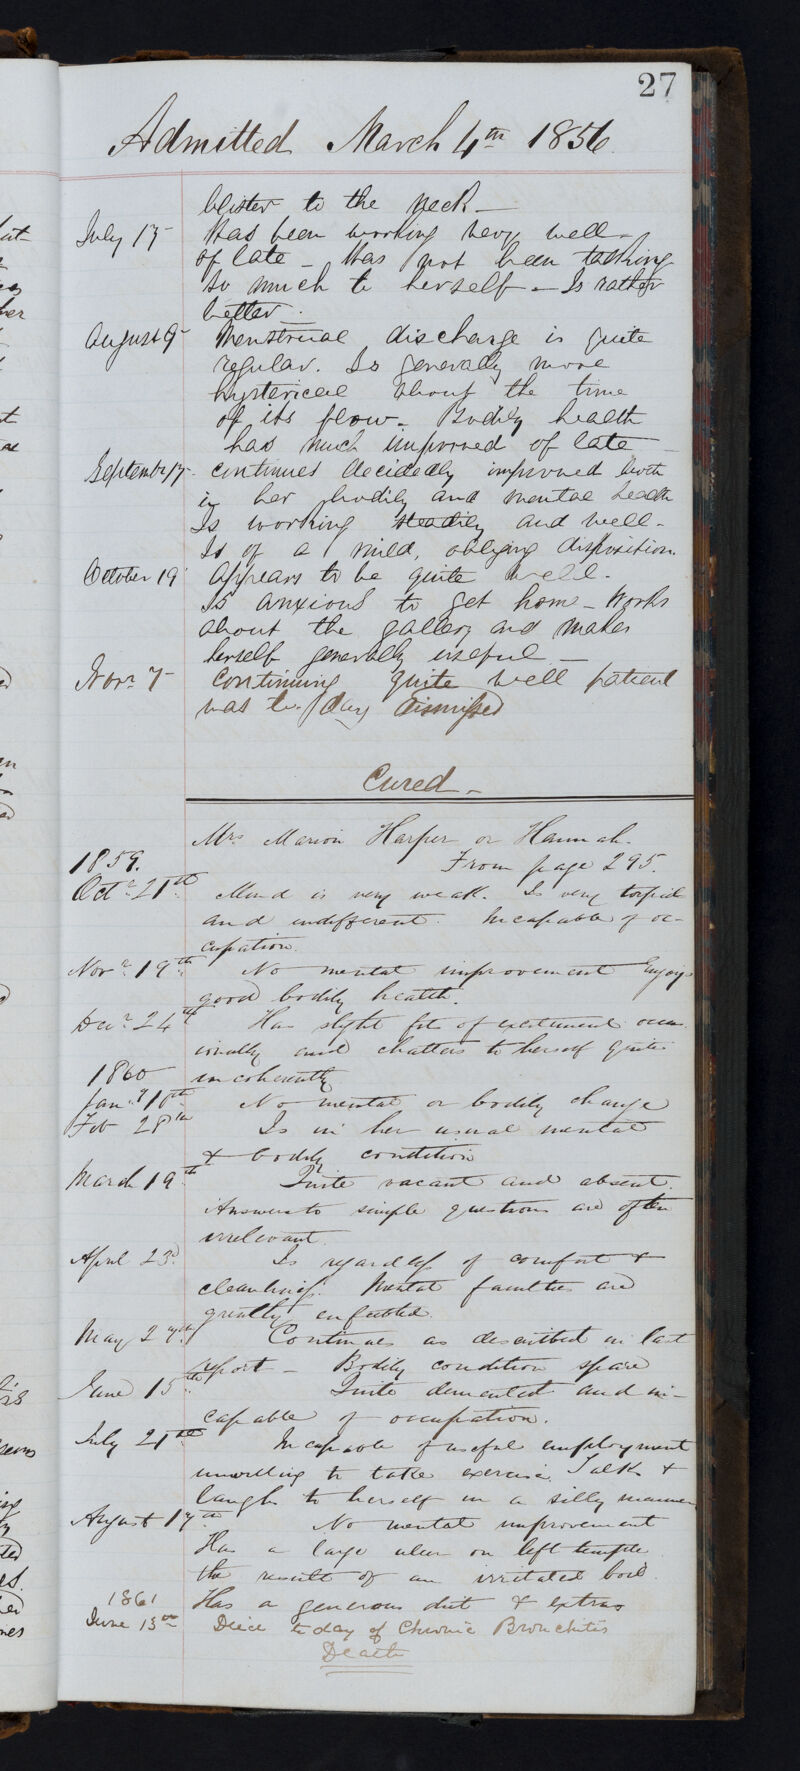 27
Admitted March 4th 1856
blister to the neck —
July 17 Has been working very well
of late — Has not been talking
so much to herself — Is rather
better.
August 9 Menstrual discharge is quite
regular. Is generally more
hysterical about the time
of its flow. Bodily health
has much improved of late —
September 17 continues decidedly improved both
in her bodily and mental health
Is working steadily and well —
Is of a mild, obliging disposition.
October 19 appears to be quite well.
Is anxious to get home — Works
about the gallery and makes
herself generally useful —
Novr 7 continuing quite well patient
was to day dismissed
Cured —
Mrs Marion Harper or Hannah.
1859. From page 295.
Octr 21st Mind is very weak. Is very torpid
and indifferent. Incapable of oc-
cupation.
Novr 19th No mental improvement Enjoys
good bodily health.
Decr 24th Has slight fits of excitement occa
sionally and chatters to herself quite
1860 incoherently
Jany 10th No mental or bodily change
Feb 28th Is in her usual mental
& bodily condition
March 19th Quite vacant and absent.
Answers to simple questions are often
irrelevant.
April 23d Is regardless of comfort &
cleanliness. Mental faculties are
greatly enfeebled.
May 27th Continues as described in last
report — Bodily condition spare
June 15th Quite demented and in-
capable of occupation.
July 21st Incapable of useful employment
unwilling to take exercise. Talks &
laughs to herself in a silly manner
August 17th No mental improvement
Has a large ulcer on left temple
the result of an irritated boil.
1861 Has a generous diet & extras
June 13th Died to day of Chronic Bronchitis
Death